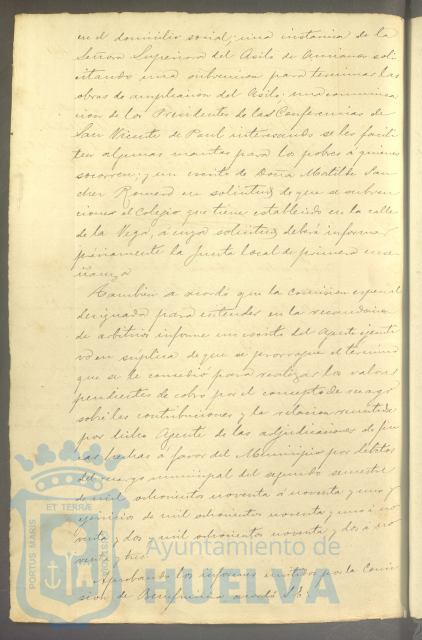 en el domicilio social; una instancia de la
Señora Superiora del Asilo de Ancianos soli-
citando una subvencion para terminar las
obras de ampliacion del Asilo; una comunica-
cion de los Presidentes de las Conferencias de
San Vicente de Paul interesando se les facili-
ten algunas mantas para los pobres á quienes
socorren; y un escrito de Doña Matilde San-
chez Romero en solicitud de que se subven-
cione el Colegio que tiene establecido en la calle
de la Vega, á cuya solicitud deberá informar
préviamente la Junta local de primera ense-
ñanza
Tambien se acordó que la comision especial
designada para entender en la recaudacion
de arbitrios informe un escrito del Agente ejecuti-
vo en suplica de que se prorrogue el termino
que se le concedio para realizar los valores
pendientes de cobro por el concepto de recargo
sobre las contribuciones y la relacion remitida
por dicho Agente de las adjudicaciones de fin-
cas hechas á favor del Municipio por debitos
del recargo municipal del segundo semestre
de mil ochocientos noventa á noventa y uno y
ejercicios de mil ochocientos noventa y uno á no-
venta y dos y mil ochocientos noventa y dos á no-
venta y tres.
Aprobando los informes emitidos por la Comi-
sion de Beneficencia acordó S.E.
PORTUS MARIS
ET TERRÆ
CUSTODIA
Ayuntamiento de
HUELVA